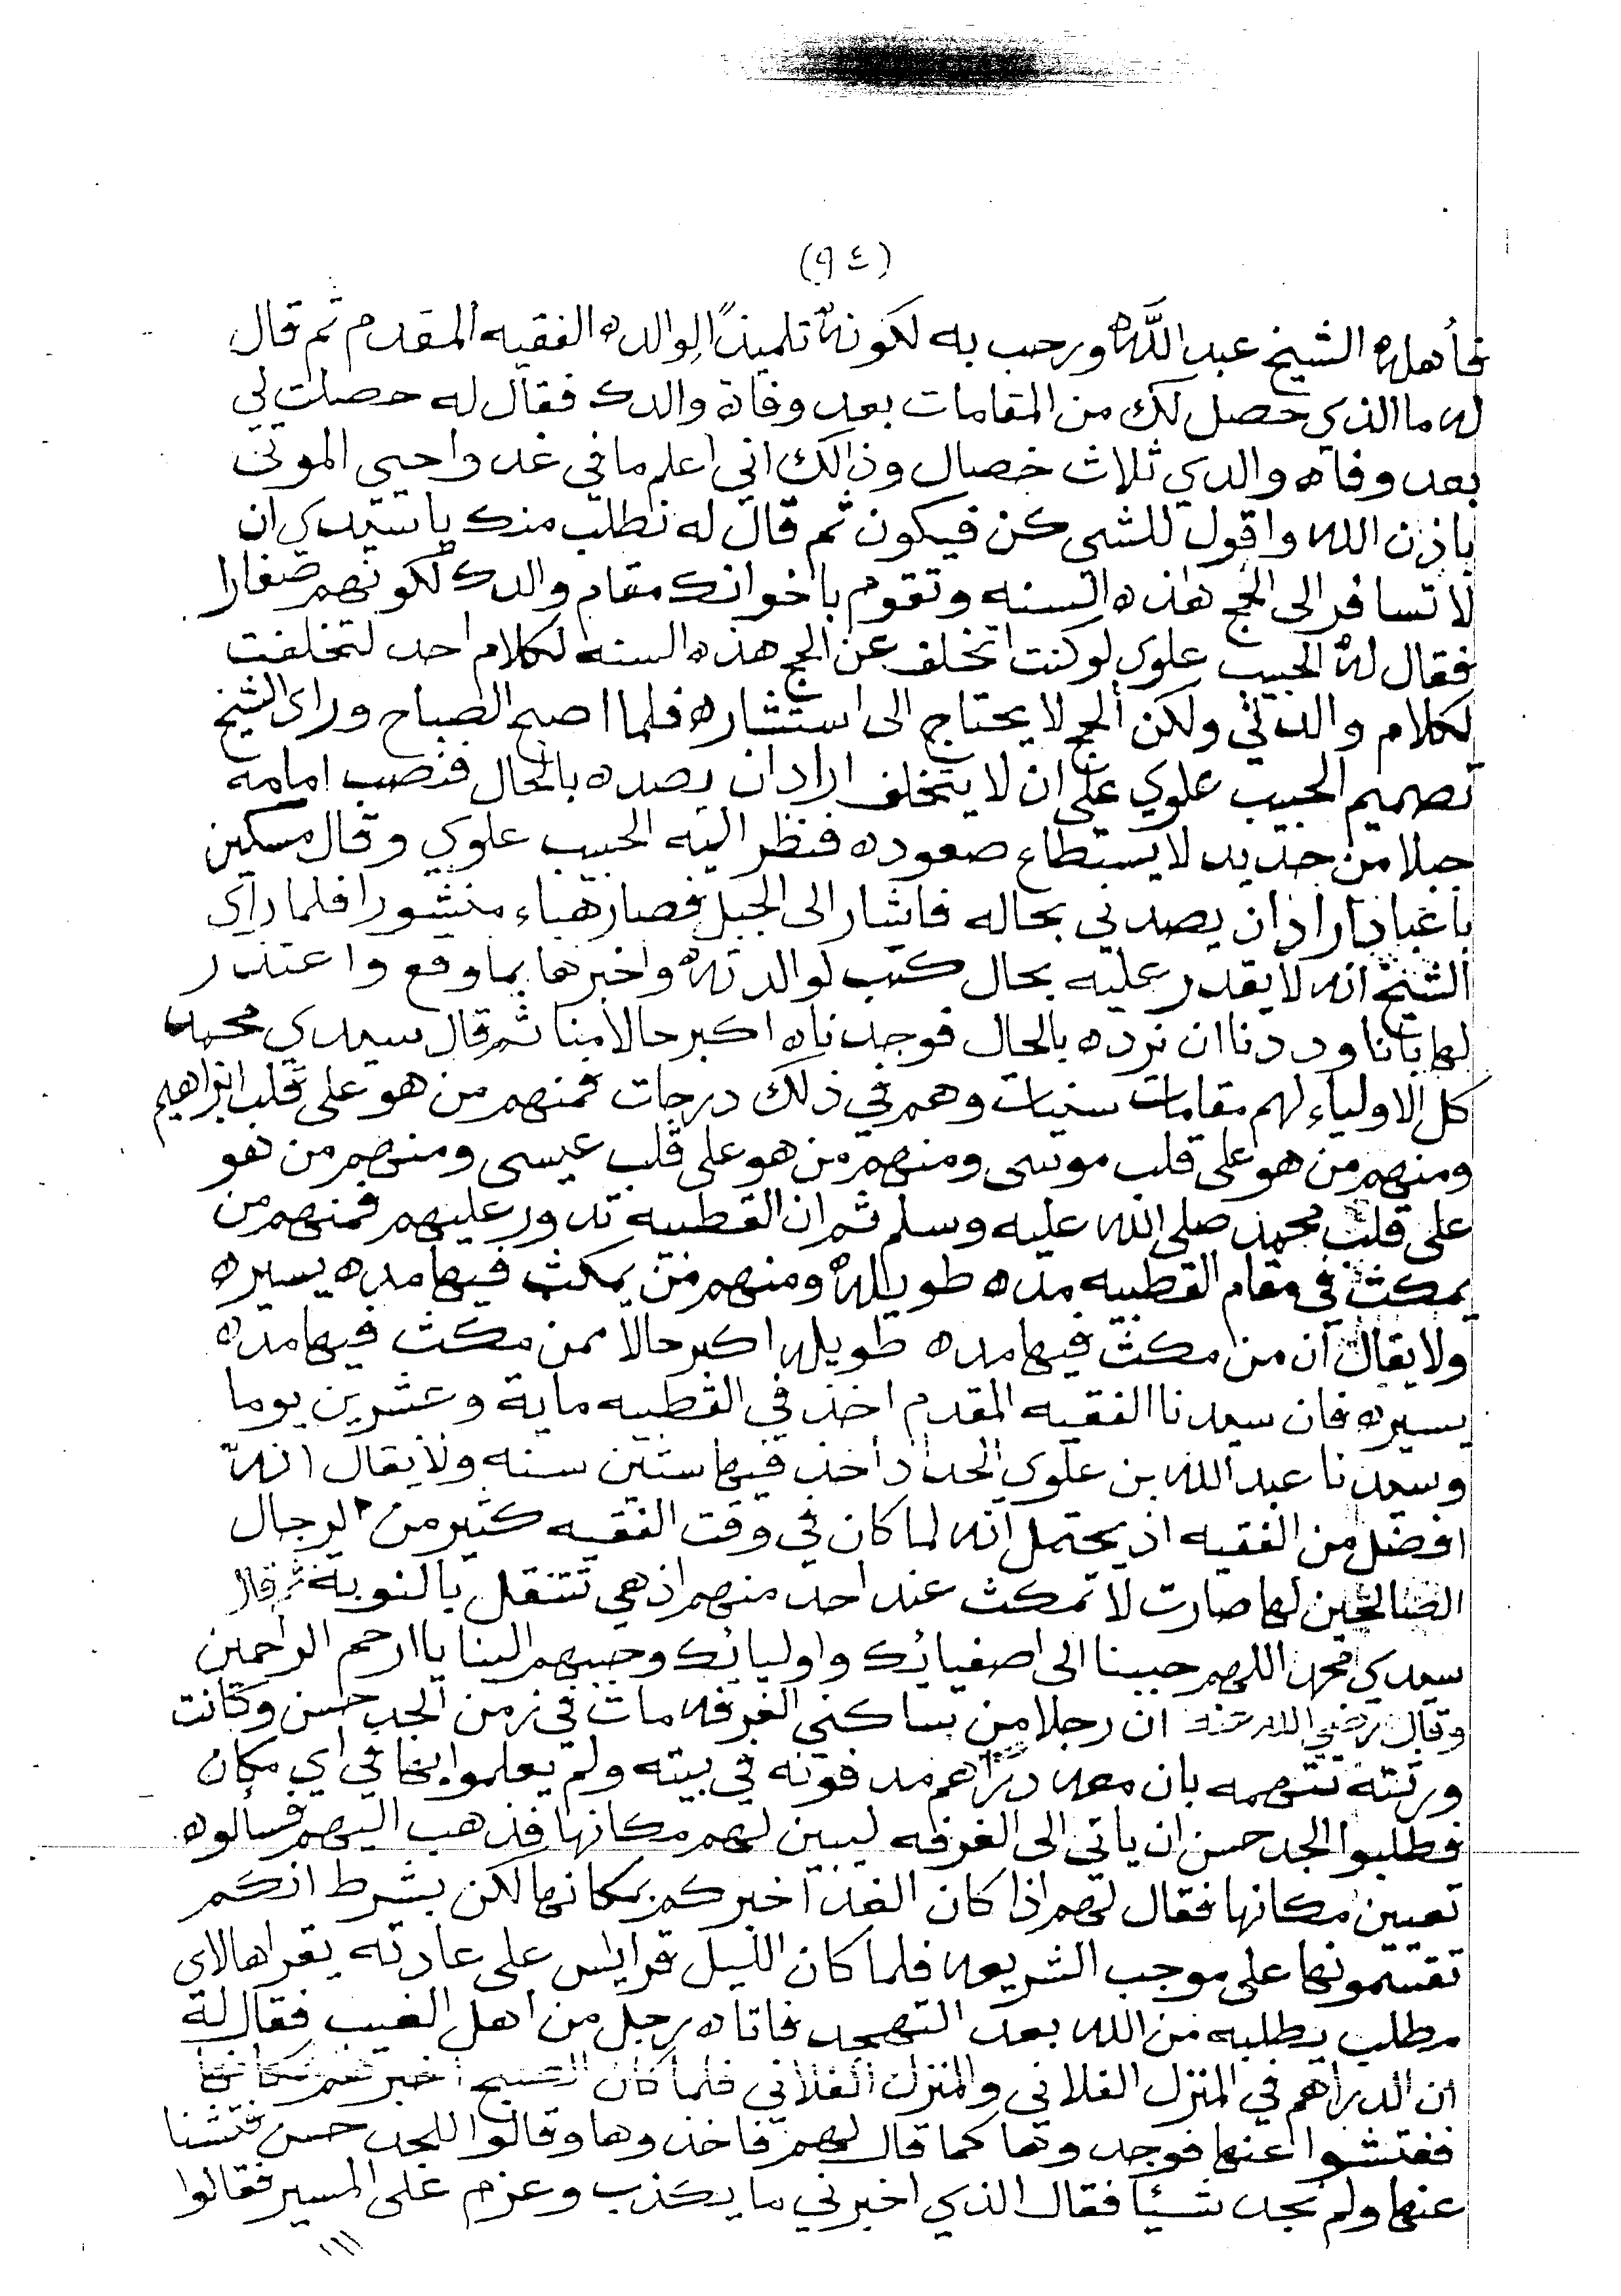 (٩٤)
فأهله الشيخ عبد اللَّه ورحب به لكونه تلميذاً لوالده الفقيه المقدم ثم قال
له ما الذي حصل لك من المقامات بعد وفاة والدك فقال له حصلت لي
بعد وفاه والدي ثلاث خصال وذالك اني اعلم ما في غد واحيي الموتى
باذن الله واقول للشي كن فيكون ثم قال له نطلب منك يا سيدي ان
لا تسافر الى الحج هذه السنه وتقوم باخوانك مقام والدك لكونهم صغارا
فقال له الحبيب علوي لو كنت اتخلف عن الحج هذه السنه لكلام احد لتخلفت
لكلام والدتي ولكن الحج لا يحتاج الى استشاره فلما اصبح الصباح وراى الشيخ
تصميم الحبيب علوي على ان لا يتخلف اراد ان يصده بالحال فنصب امامه
جبلا من حديد لا يستطاع صعوده فنظر اليه الحبيب علوي وقال مسكين
باعباد اراد ان يصدني بحاله فاشار الى الجبل فصار هباء منثورا فلما راى
الشيخ انه لا يقدر عليه بحال كتب لوالدته واخبرها بما وقع واعتذر
لها باننا وددنا ان نرده بالحال فوجدناه اكبر حالا منا ثم قال سيدي محمد
كل الاولياء لهم مقامات سنيات وهم في ذلك درجات فمنهم من هو على قلب ابراهيم
ومنهم من هو على قلب موسى ومنهم من هو على قلب عيسى ومنهم من هو
على قلب محمد صلى الله عليه وسلم ثم ان القطبيه تدور عليهم فمنهم من
يمكث في مقام القطبيه مده طويله ومنهم من يمكث فيها مده يسيره
ولا يقال ان من مكث فيها مده طويله اكبر حالا ممن مكث فيها مده
يسيره فان سيدنا الفقيه المقدم اخذ في القطبيه ماية وعشرين يوما
وسيدنا عبد الله بن علوي الحداد اخذ فيها ستين سنه ولا يقال انه
افضل من الفقيه اذ يحتمل انه لما كان في وقت الفقيه كثير من الرجال
الصالحين لها صارت لا تمكث عند احد منهم اذ هي تتنقل بالنوبة ثم قال
سيدي محمد اللهم حببنا الى اصفيائك واوليائك وحببهم الينا يا ارحم الراحمين
وقال رضي الله عنه ان رجلا من ساكني الغرفه مات في زمن الجد حسن وكانت
ورثته تتهمه بان معه دراهم مدفونه في بيته ولم يعلموا بها في اي مكان
فطلبوا الجد حسن ان ياتي الى الغرفه ليبين لهم مكانها فذهب اليهم فسألوه
تعيين مكانها فقال لهم اذا كان الغد اخبركم بمكانها لكن بشرط انكم
تقتسمونها على موجب الشريعه فلما كان الليل قرا يس على عادته يقراها لاي
مطلب يطلبه من الله بعد التهجد فاتاه رجل من اهل الغيب فقال له
ان الدراهم في المنزل الفلاني والمنزل الفلاني فلما كان الصبح اخبرهم بمكانها
ففتشوا عنها فوجدوها كما قال لهم فاخذوها وقالوا للجد حسن فتشنا
عنها ولم نجد شيئا فقال الذي اخبرني ما يكذب وعزم على المسير فقالوا